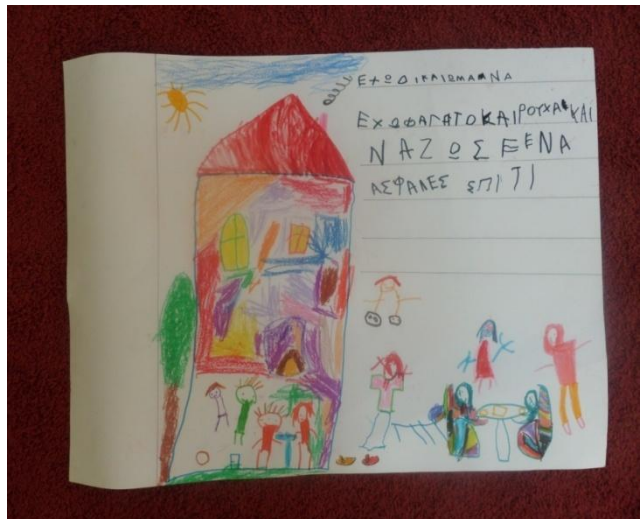 ΕΧΩ ΔΙΚΑΙΩΜΑ ΝΑ
ΕΧΩ ΦΑΓΑΤΟ ΚΑΙ ΡΟΥΧΑ ΚΑΙ
ΝΑ ΖΩ ΣΕ ΕΝΑ
ΑΣΦΑΛΕΣ ΣΠΙΤΙ